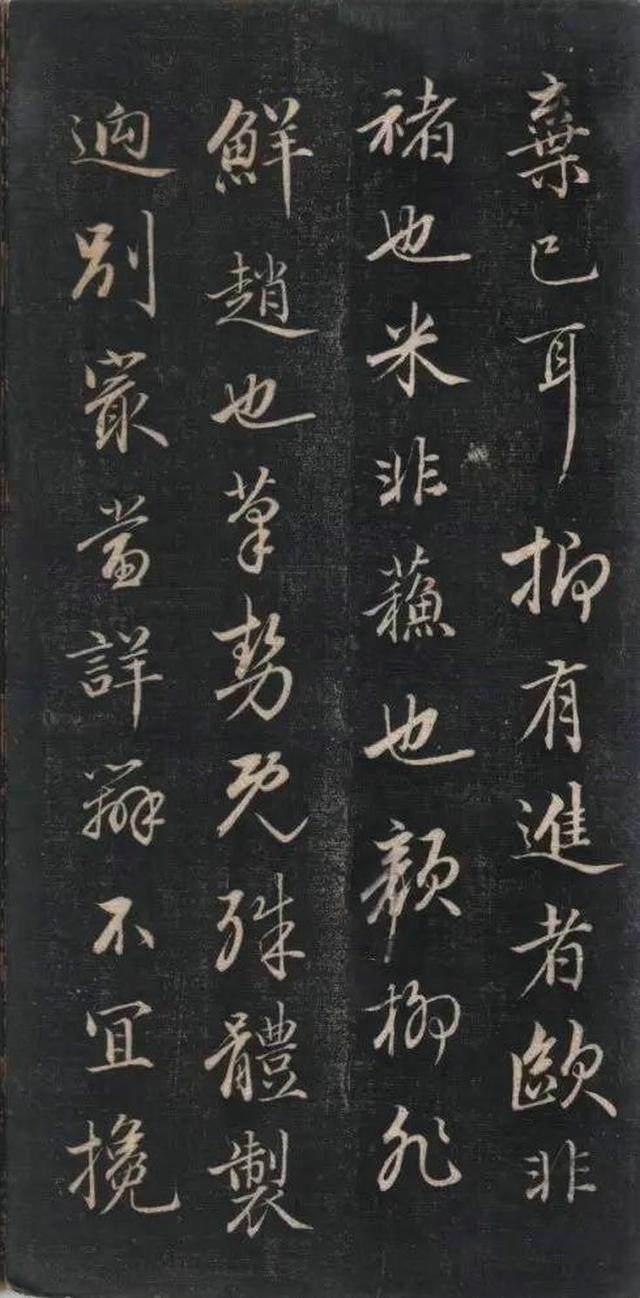 棄已耳抑有進者歐非
褚也米非蘓也顏柳非
鮮趙也筆勢既殊體製
迥別最當詳辨不宜攙